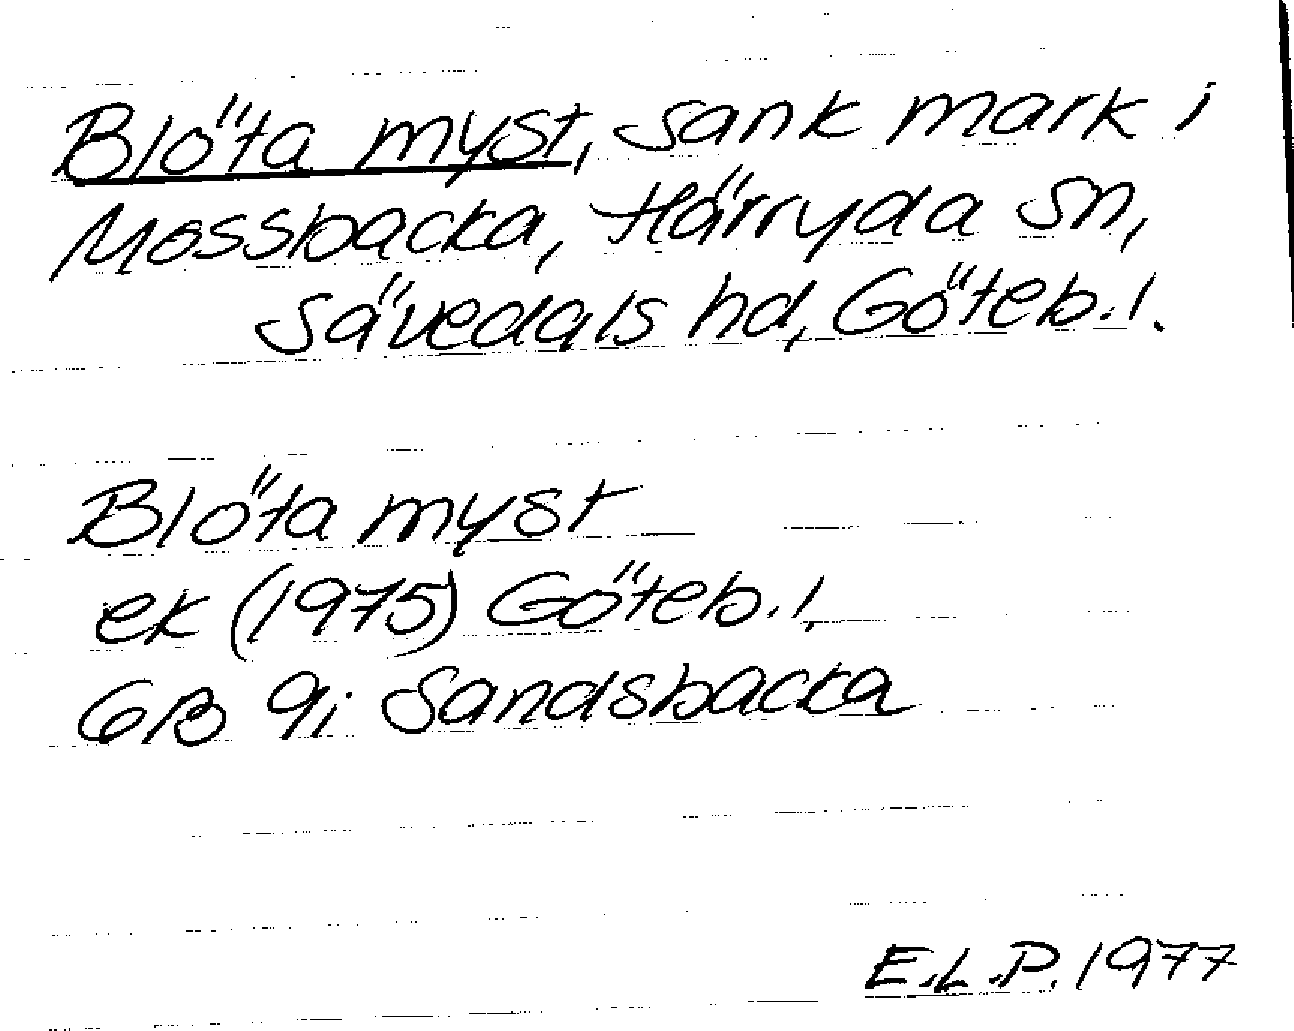 Blöta myst, sank mark i
Mossbacka, Härryda sn,
Sävedals hd, Göteb. l.
Blöta myst
ek (1975) Göteb. l.
6B 9i Sandsbacka
E.L.P. 1977